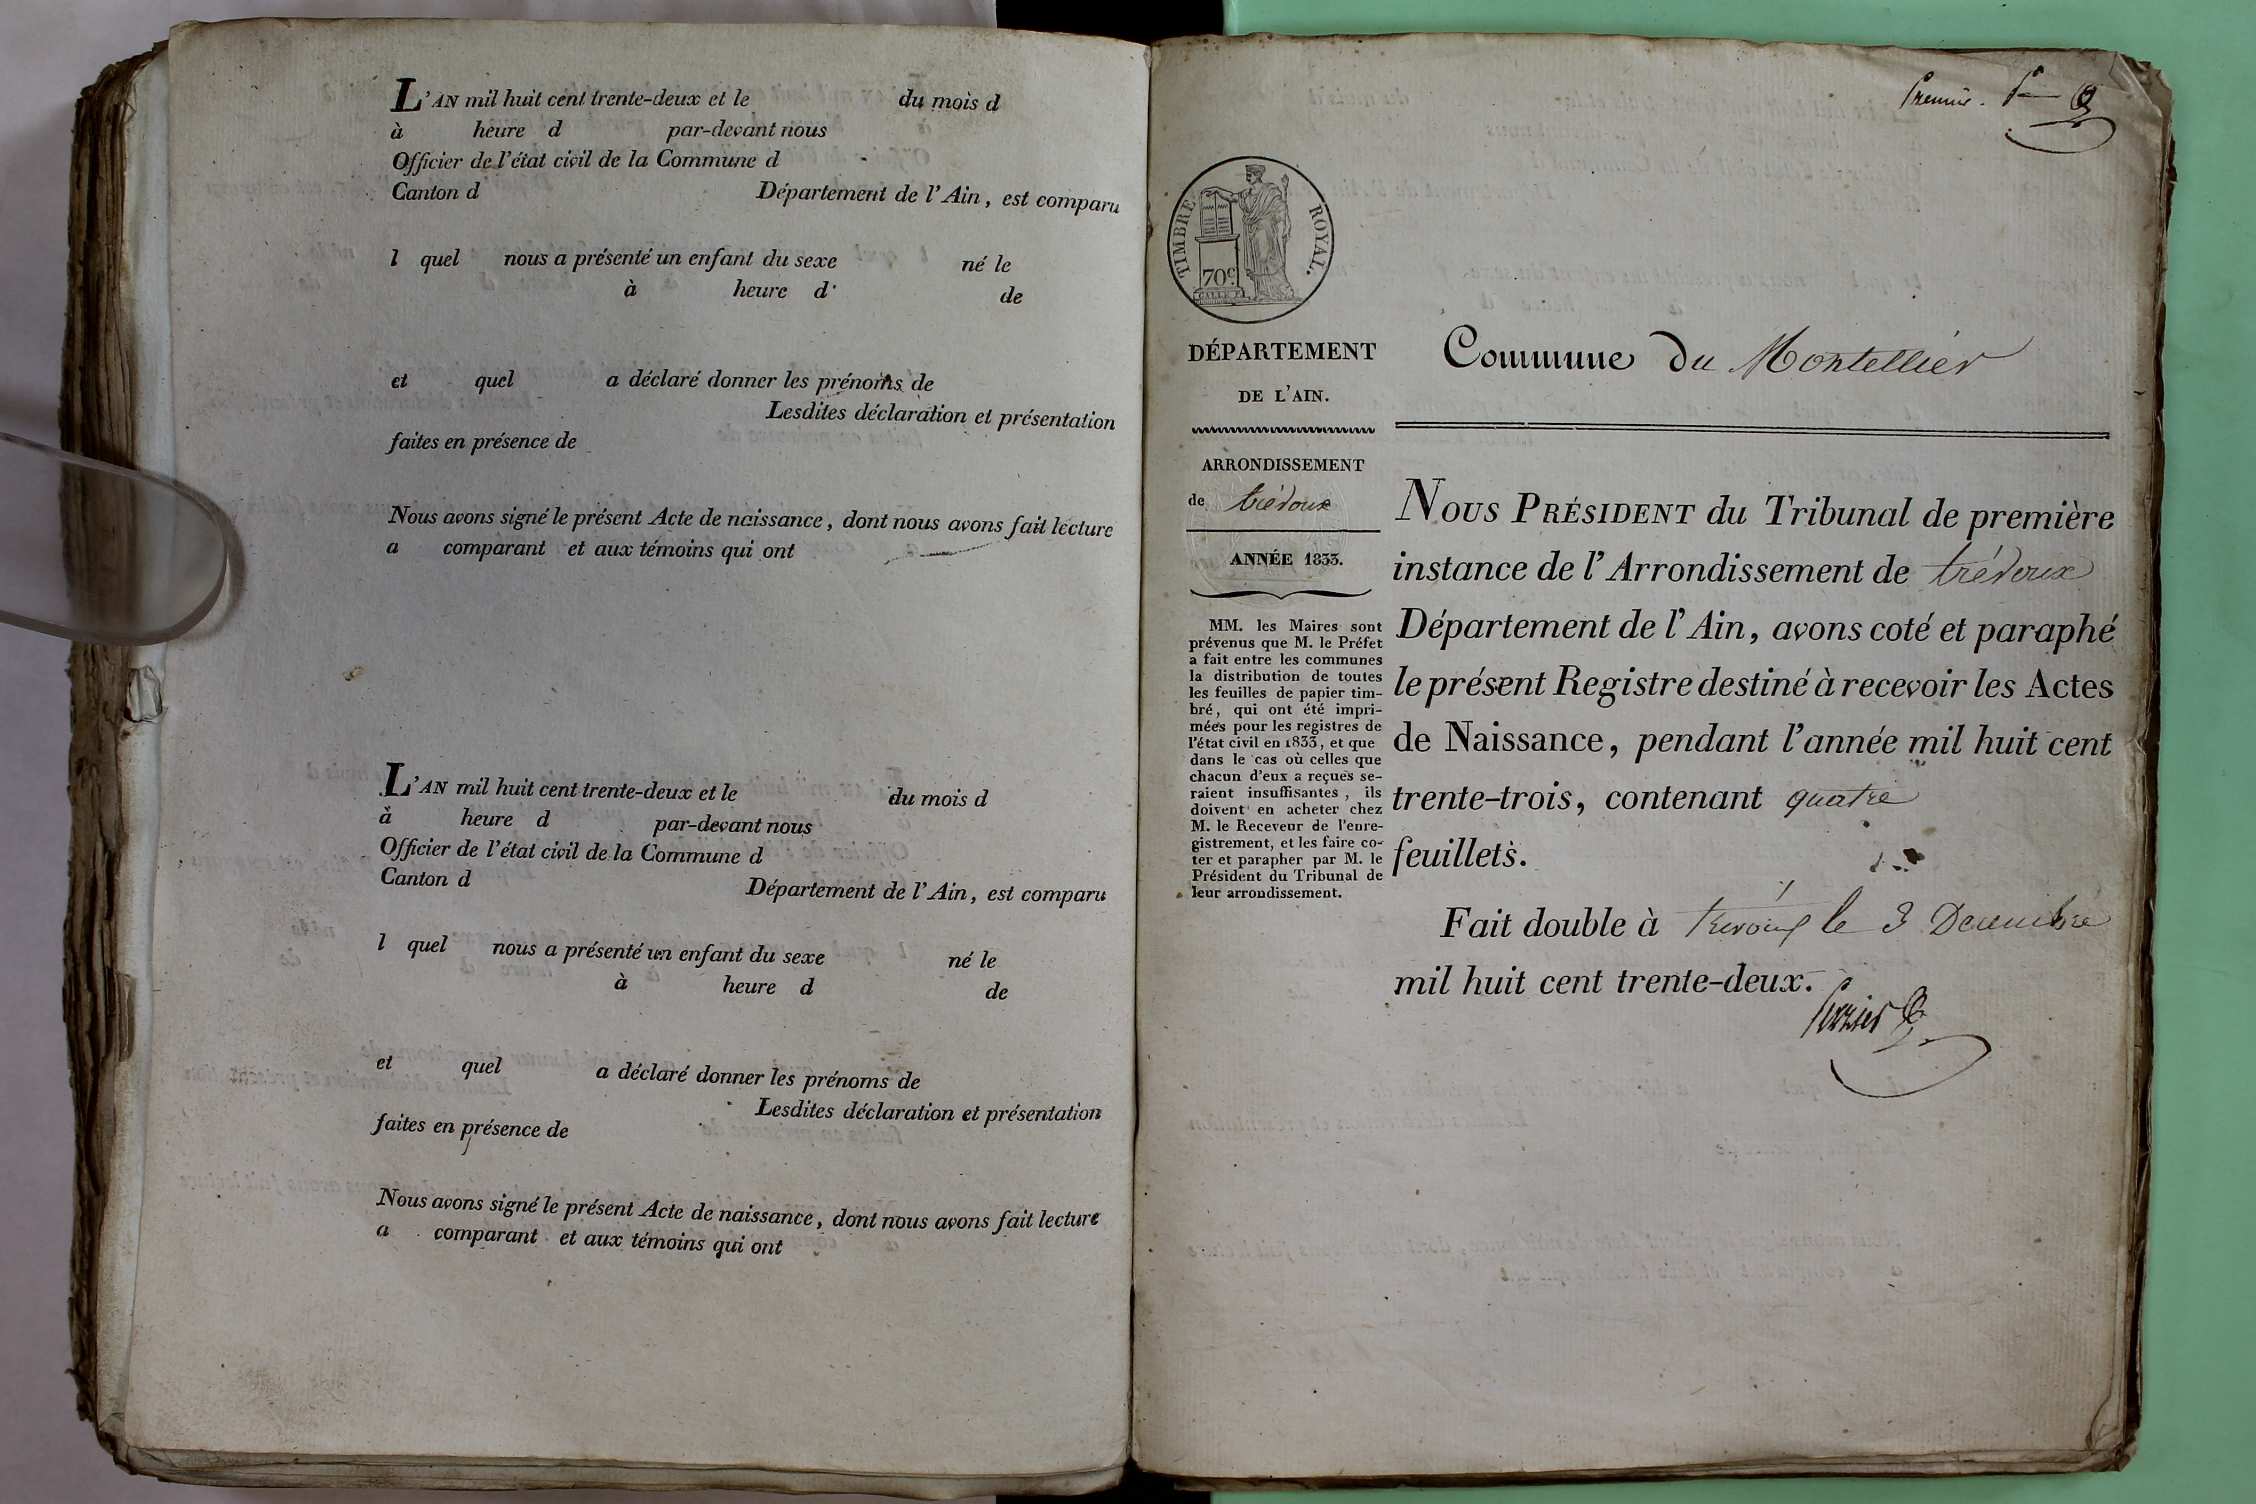 L'AN mil huit cent trente-deux et le du mois d
à heure d par-devant nous
Officier de l'état civil de la Commune d
Canton d Département de l'Ain, est comparu
l quel nous a présenté un enfant du sexe né le
à heure d de
et quel a déclaré donner les prénoms de
Lesdites déclaration et présentation
faites en présence de
Nous avons signé le présent Acte de naissance, dont nous avons fait lecture
a comparant et aux témoins qui ont
L'AN mil huit cent trente-deux et le du mois d
à heure d par-devant nous
Officier de l'état civil de la Commune d
Canton d Département de l'Ain, est comparu
l quel nous a présenté un enfant du sexe né le
à heure d de
et quel a déclaré donner les prénoms de
Lesdites déclaration et présentation
faites en présence de
Nous avons signé le présent Acte de naissance, dont nous avons fait lecture
a comparant et aux témoins qui ont
Premier.
TIMBRE ROYAL.
70c
DÉPARTEMENT
DE L'AIN.
ARRONDISSEMENT
de trévoux
ANNÉE 1833.
MM. les Maires sont
prévenus que M. le Préfet
a fait entre les communes
la distribution de toutes
les feuilles de papier tim-
bré, qui ont été impri-
mées pour les registres de
l'état civil en 1833, et que
dans le cas où celles que
chacun d'eux a reçues se-
raient insuffisantes, ils
doivent en acheter chez
M. le Receveur de l'enre-
gistrement, et les faire co-
ter et parapher par M. le
Président du Tribunal de
leur arrondissement.
Commune du Montellier
NOUS PRÉSIDENT du Tribunal de première
instance de l'Arrondissement de trévoux
Département de l'Ain, avons coté et paraphé
le présent Registre destiné à recevoir les Actes
de Naissance, pendant l'année mil huit cent
trente-trois, contenant quatre
feuillets.
Fait double à trévoux le 3 Decembre
mil huit cent trente-deux.